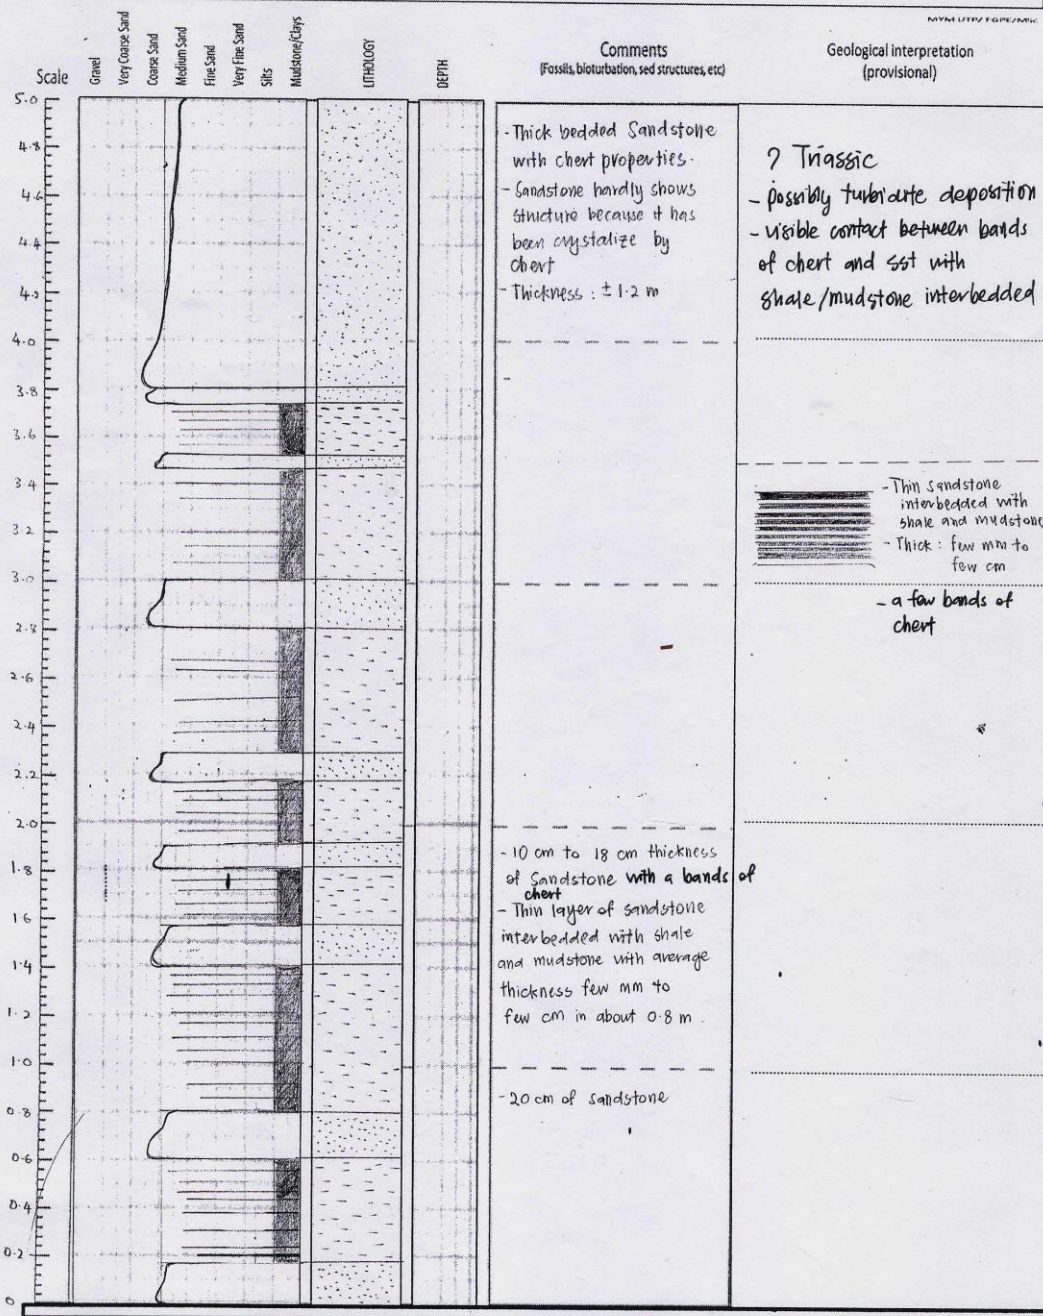 MYM UTP/ FGPE/Misc
Scale
Gravel
Very Coarse Sand
Coarse Sand
Medium Sand
Fine Sand
Very Fine Sand
Silts
Mudstone/Clays
LITHOLOGY
DEPTH
Comments
(Fossils, bioturbation, sed structures, etc)
Geological interpretation
(provisional)
5.0
4.8
4.6
4.4
4.2
4.0
3.8
3.6
3.4
3.2
3.0
2.8
2.6
2.4
2.2
2.0
1.8
1.6
1.4
1.2
1.0
0.8
0.6
0.4
0.2
0
- Thick bedded Sandstone
with chert properties.
- Sandstone hardly shows
structure because it has
been crystalize by
chert
- Thickness : ± 1.2 m
- 10 cm to 18 cm thickness
of Sandstone with a bands of
chert
- Thin layer of sandstone
interbedded with shale
and mudstone with average
thickness few mm to
few cm in about 0.8 m.
- 20 cm of sandstone
? Triassic
- possibly turbidite deposition
- visible contact between bands
of chert and sst with
shale/mudstone interbedded
- Thin sandstone
interbedded with
shale and mudstone
- Thick : few mm to
few cm
- a few bands of
chert